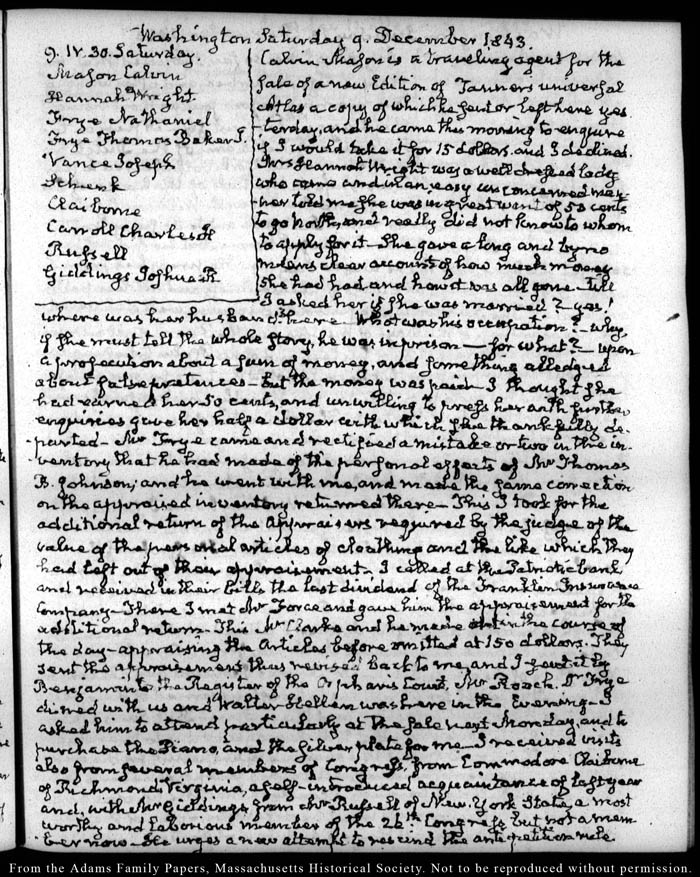 Washington Saturday 9. December 1843.
9. IV. 30. Saturday.
Mason Calvin
Hannah Wright
Frye Nathaniel
Frye Thomas Baker J.
Vance Joseph
Schenk
Claiborne
Carroll Charles H
Russell
Giddings Joshua R.
Calvin Mason is a traveling agent for the
sale of a new Edition of Tanners universal
Atlas a copy of which he sent or left here yes
terday, and he came this morning to enquire
if I would take it for 15 dollars. and I declined.
Mrs Hannah Wright was a well dressed lady
who came and in an easy unconcerned man-
ner told me she was in great want of 50 cents
to go north, and really did not know to whom
to apply for it. She gave a long and by no
means clear account of how much money
she had had and how it was all gone till
I asked her if she was married? yes!
where was her husband? here What was his occupation? why,
if she must tell the whole story, he was in prison — for what? — upon
a prosecution about a sum of money, and something alledged
about false pretences — but the money was paid — I thought she
had earned her 50 cents, and unwilling to press her with further
enquiries gave her half a dollar with which she thankfully de-
parted — Mr Frye came and rectified a mistake or two in the in-
ventory that he had made of the personal effects of Mr Thomas
B. Johnson; and he went with me, and made the same correction
on the appraised inventory returned there — This I took for the
additional return of the Appraisers required by the judge of the
value of the personal articles of cloathing and the like which they
had left out of their appraisement. I called at the Patriotic bank
and received in their bills the last dividend of the Franklin Insurance
Company — There I met Mr Force and gave him the appraisement for the
additional return. This Mr Clarke and he made in the course of
the day — appraising the Articles before omitted at 150 dollars. They
sent the appraisement thus revised back to me, and I sent it by
Benjamin to the Register of the Orphan's Court, Mr Roach. T. Frye
dined with us and Walter Hellen was here in the Evening — I
asked him to attend particularly at the sale next Monday, and to
purchase the Piano, and the silver plate for me — I received visits
also from several members of Congress, from Commodore Claiborne
of Richmond Virginia, a self-introduced acquaintance of last year
and, with Mr Giddings from Mr Russell of New-York State, a most
worthy and laborious member of the 26th Congress, but not a mem
ber now — He urges a new attempt to rescind the anti-petition rule
From the Adams Family Papers, Massachusetts Historical Society. Not to be reproduced without permission.